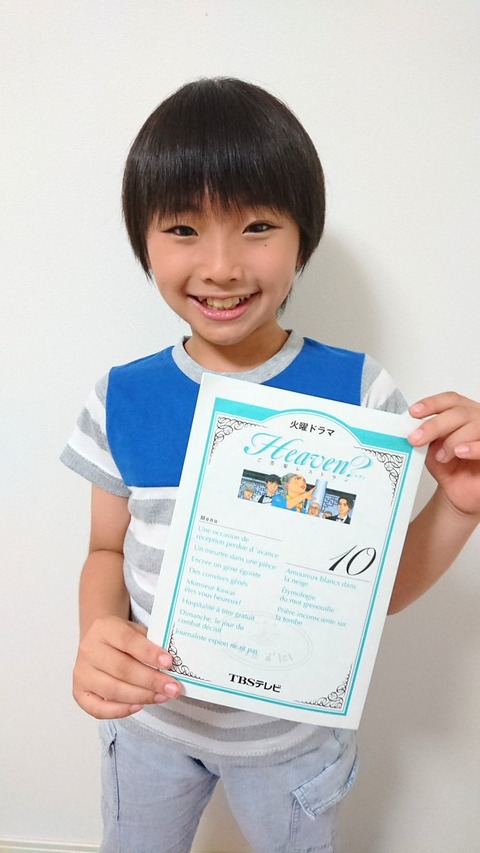 火曜ドラマ
Heaven?
ご苦楽レストラン
Menu
Une occasion de
réception perdue d'avance
Un meurtre dans une pièce
Encore un gène égoïste
Des convives gênés
Monsieur Kawai
êtes vous heureux?
Hospitalité à titre gratuit
Dimanche, le jour du
combat décisif
Journaliste espion ne rit pas
10
Amoureux blancs dans
la neige
Étymologie
du mot grenouille
Prière inconsciente sur
la tombe
TBSテレビ